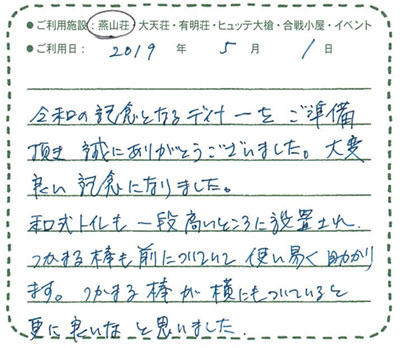 ●ご利用施設：燕山荘・大天荘・有明荘・ヒュッテ大槍・合戦小屋・イベント
●ご利用日： 2019 年 5 月 1 日
令和の記念となるディナーを ご準備
頂き 誠にありがとうございました。大変
良い 記念になりました。
和式トイレも 一段高いところに設置され、
つかまる棒も前についていて 使い易く 助かり
ます。つかまる棒が 横にもついていると
更に良いな と思いました.